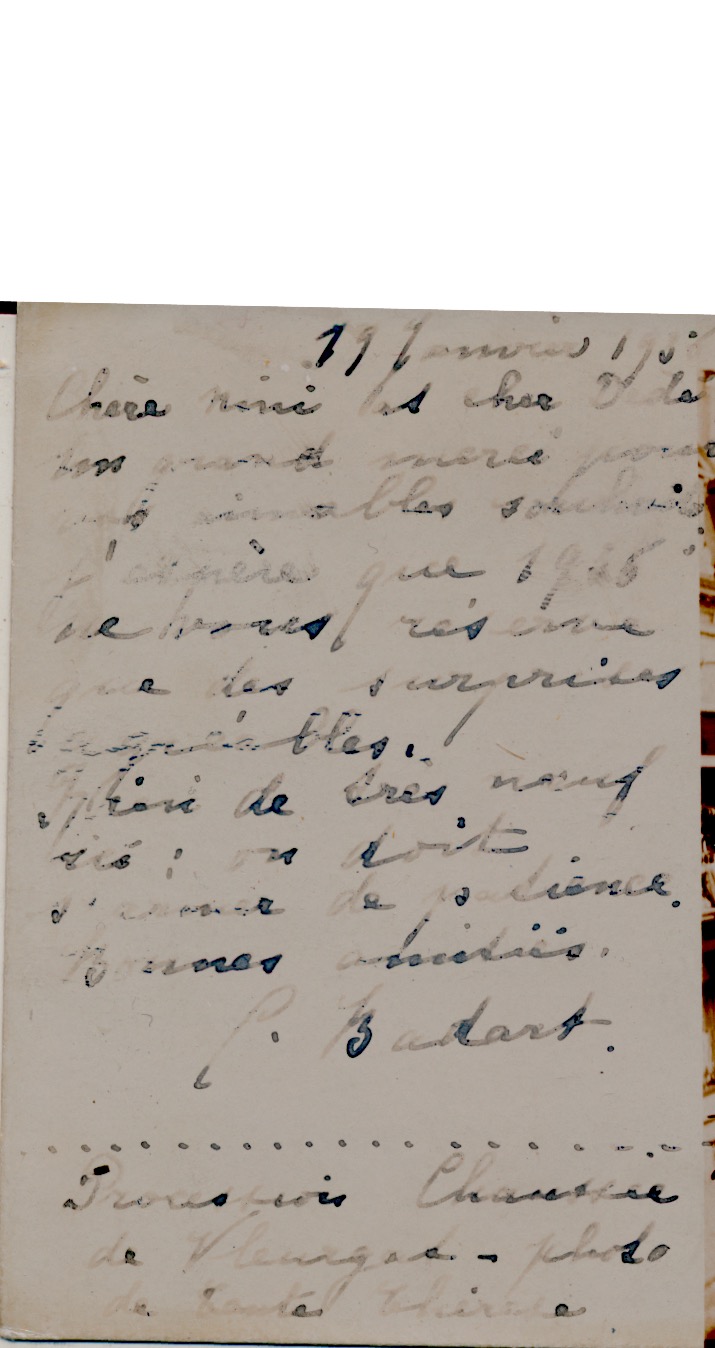 19 Janvier 19
Chère Nini et cher
un grand merci pour
vos aimables souhaits
J'espère que 1935
ne vous réserve
que des surprises
agréables.
Rien de très neuf
ici ; on doit
s'armer de patience.
Bonnes amitiés.
Badart.
Procession Chaussée
de Vleurgat - photo
de tante Thérèse